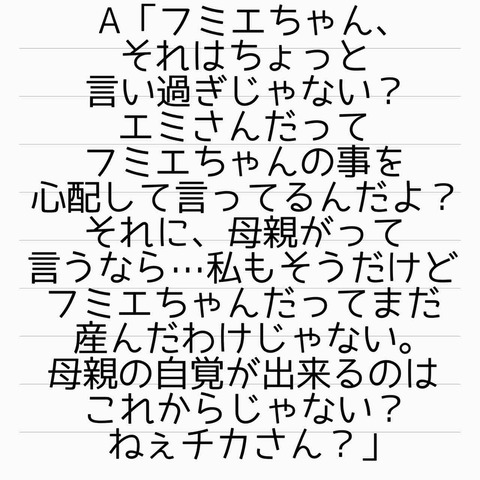 A「フミエちゃん、
それはちょっと
言い過ぎじゃない?
エミさんだって
フミエちゃんの事を
心配して言ってるんだよ?
それに、母親がって
言うなら…私もそうだけど
フミエちゃんだってまだ
産んだわけじゃない。
母親の自覚が出来るのは
これからじゃない?
ねぇチカさん?」